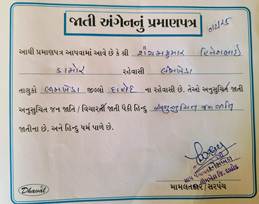 જાતી અંગેનું પ્રમાણપત્ર
આથી પ્રમાણપત્ર આપવામાં આવે છે કે શ્રી
ડામોર રહેવાસી લીમખેડા
તાલુકો લીમખેડા જીલ્લો દાહોદ ના રહેવાસી છે. તેઓ અનુસુચિત જાતી
અનુસુચિત જન જાતિ / વિચારતી જાતી પૈકી હિન્દુ અનુસુચિત જન જાતિ
જાતીના છે. અને હિન્દુ ધર્મ પાળે છે.
મામલતદાર / સરપંચ
Dhaval